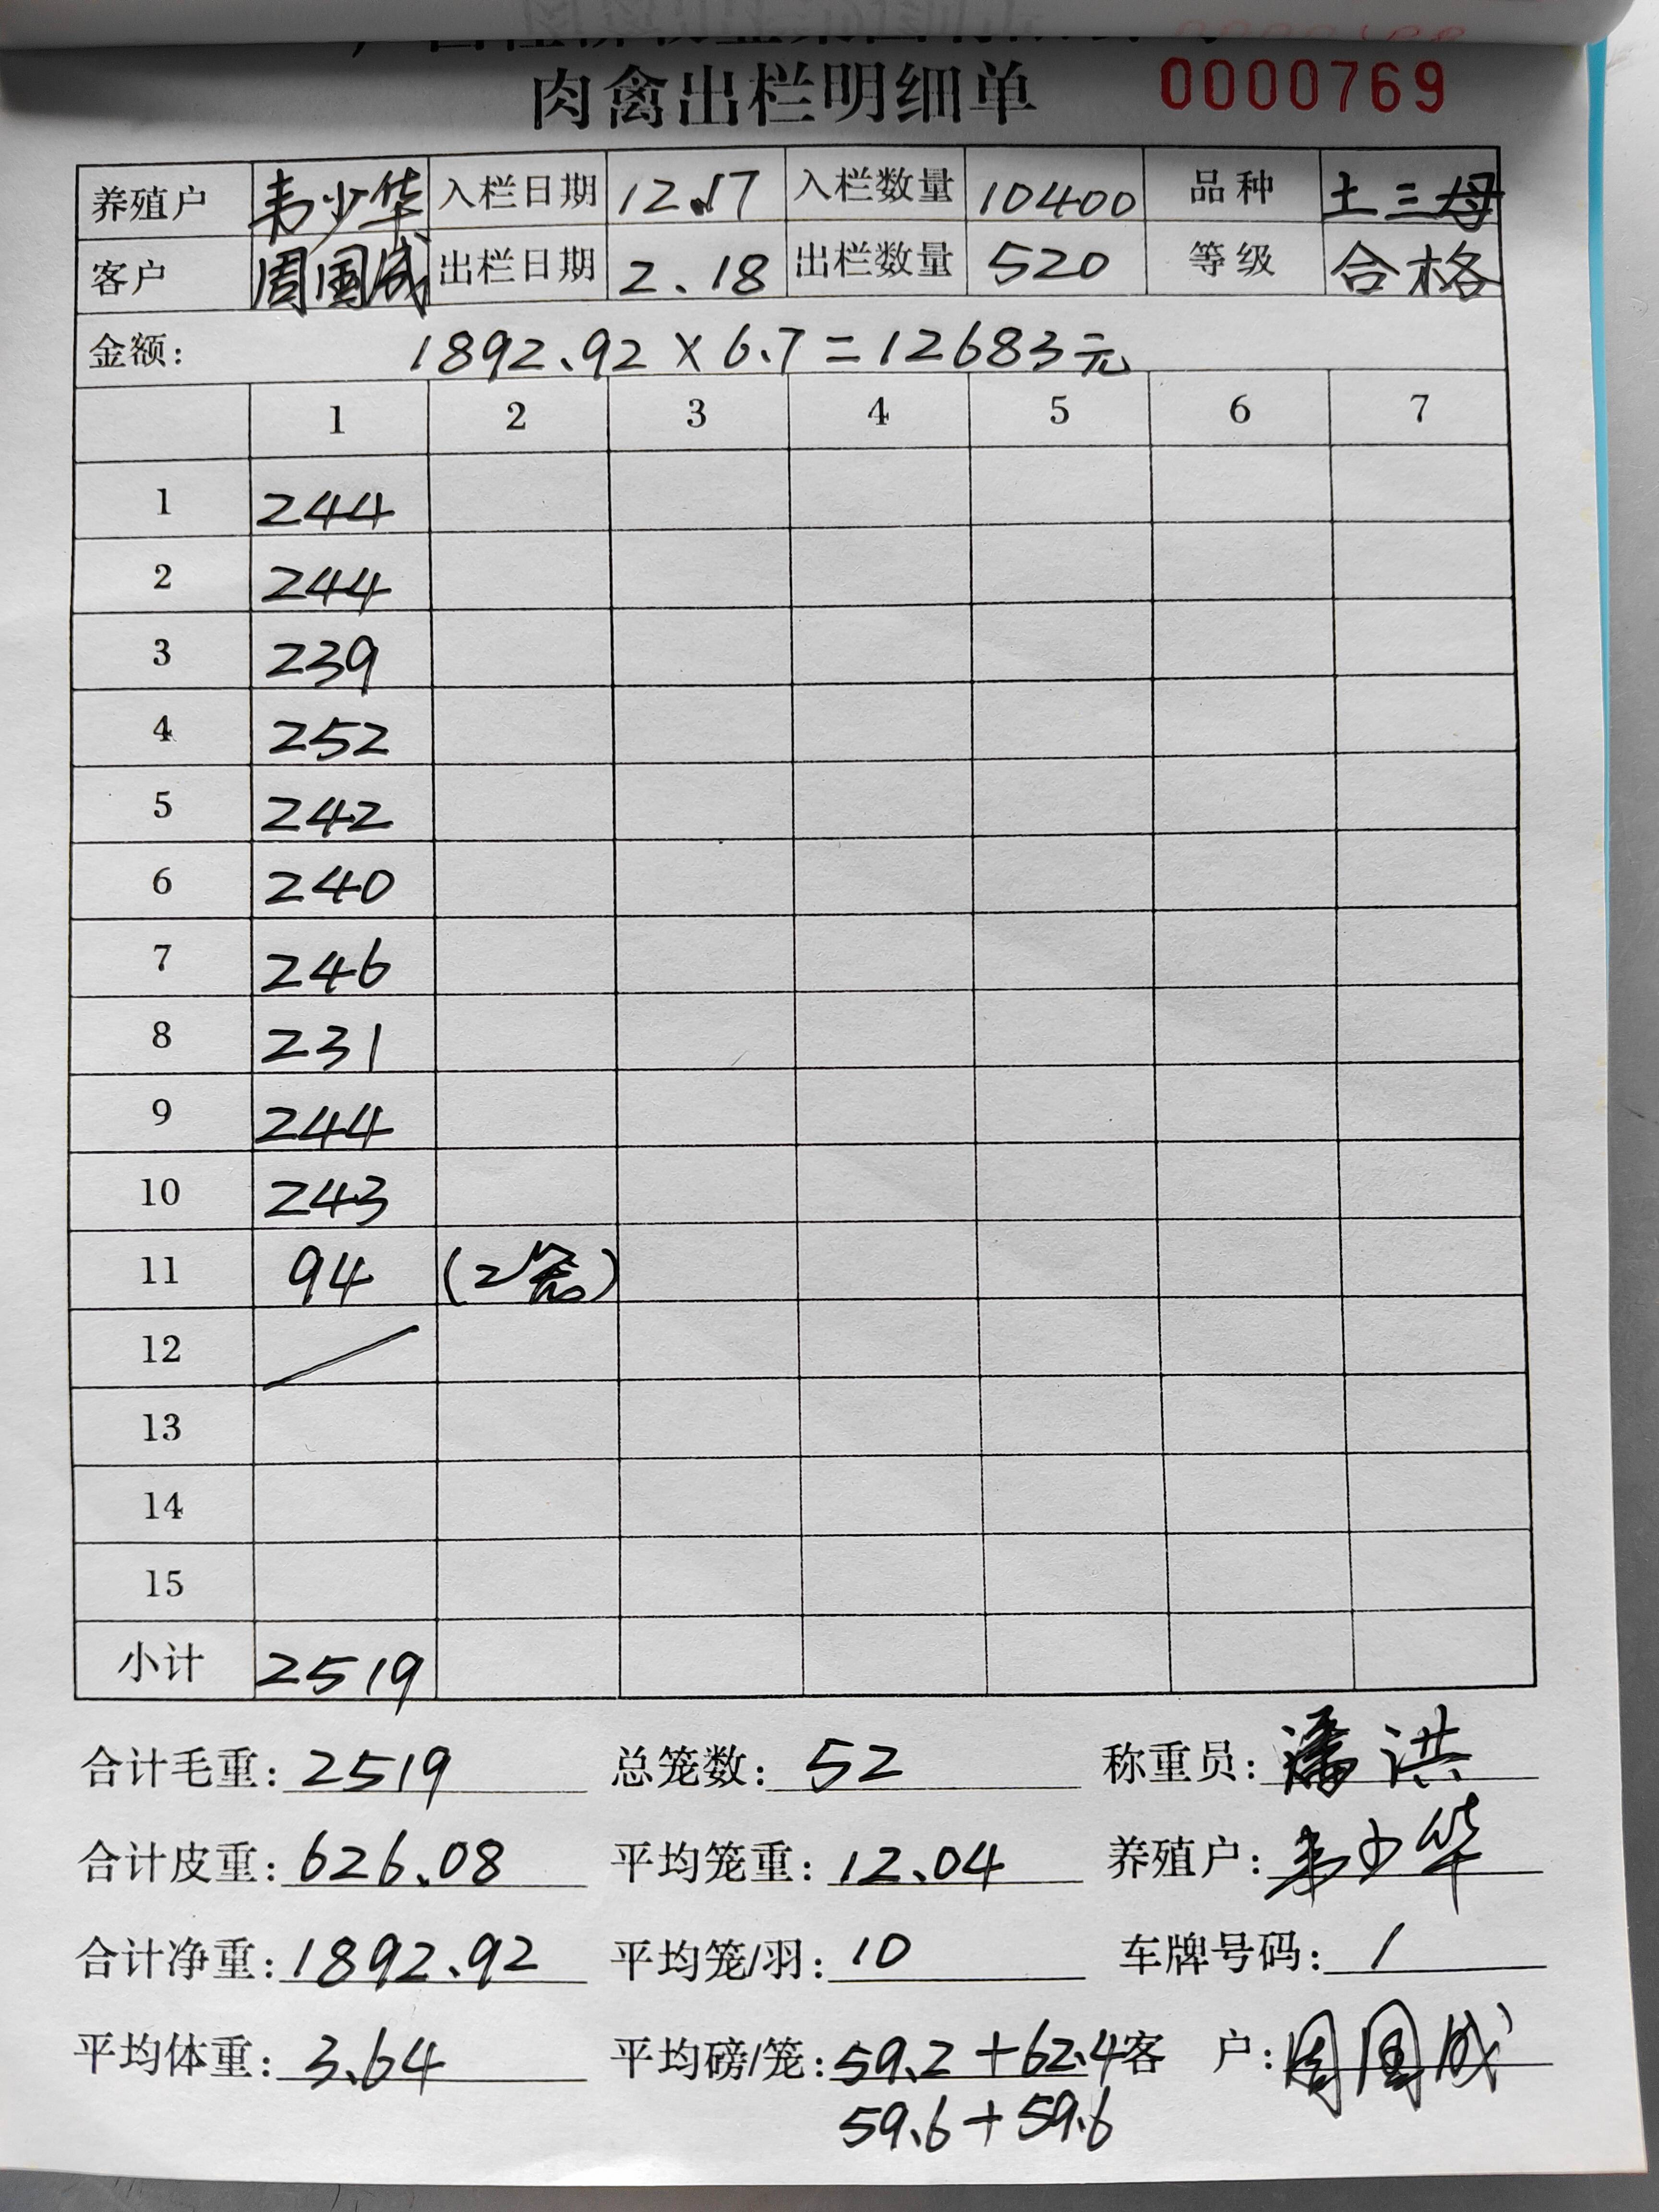 肉禽出栏明细单 0000769
养殖户 韦少华 入栏日期 12.17 入栏数量 10400 品种 土三母
客户 周国成 出栏日期 2.18 出栏数量 520 等级 合格
金额: 1892.92×6.7=12683元
1 2 3 4 5 6 7
1 244
2 244
3 239
4 252
5 242
6 240
7 246
8 231
9 244
10 243
11 94 (2笼)
12
13
14
15
小计 2519
合计毛重: 2519 总笼数: 52 称重员: 潘洪
合计皮重: 626.08 平均笼重: 12.04 养殖户: 韦少华
合计净重: 1892.92 平均笼/羽: 10 车牌号码: /
平均体重: 3.64 平均磅/笼: 59.2+62.4 客户: 周国成
59.6+59.6